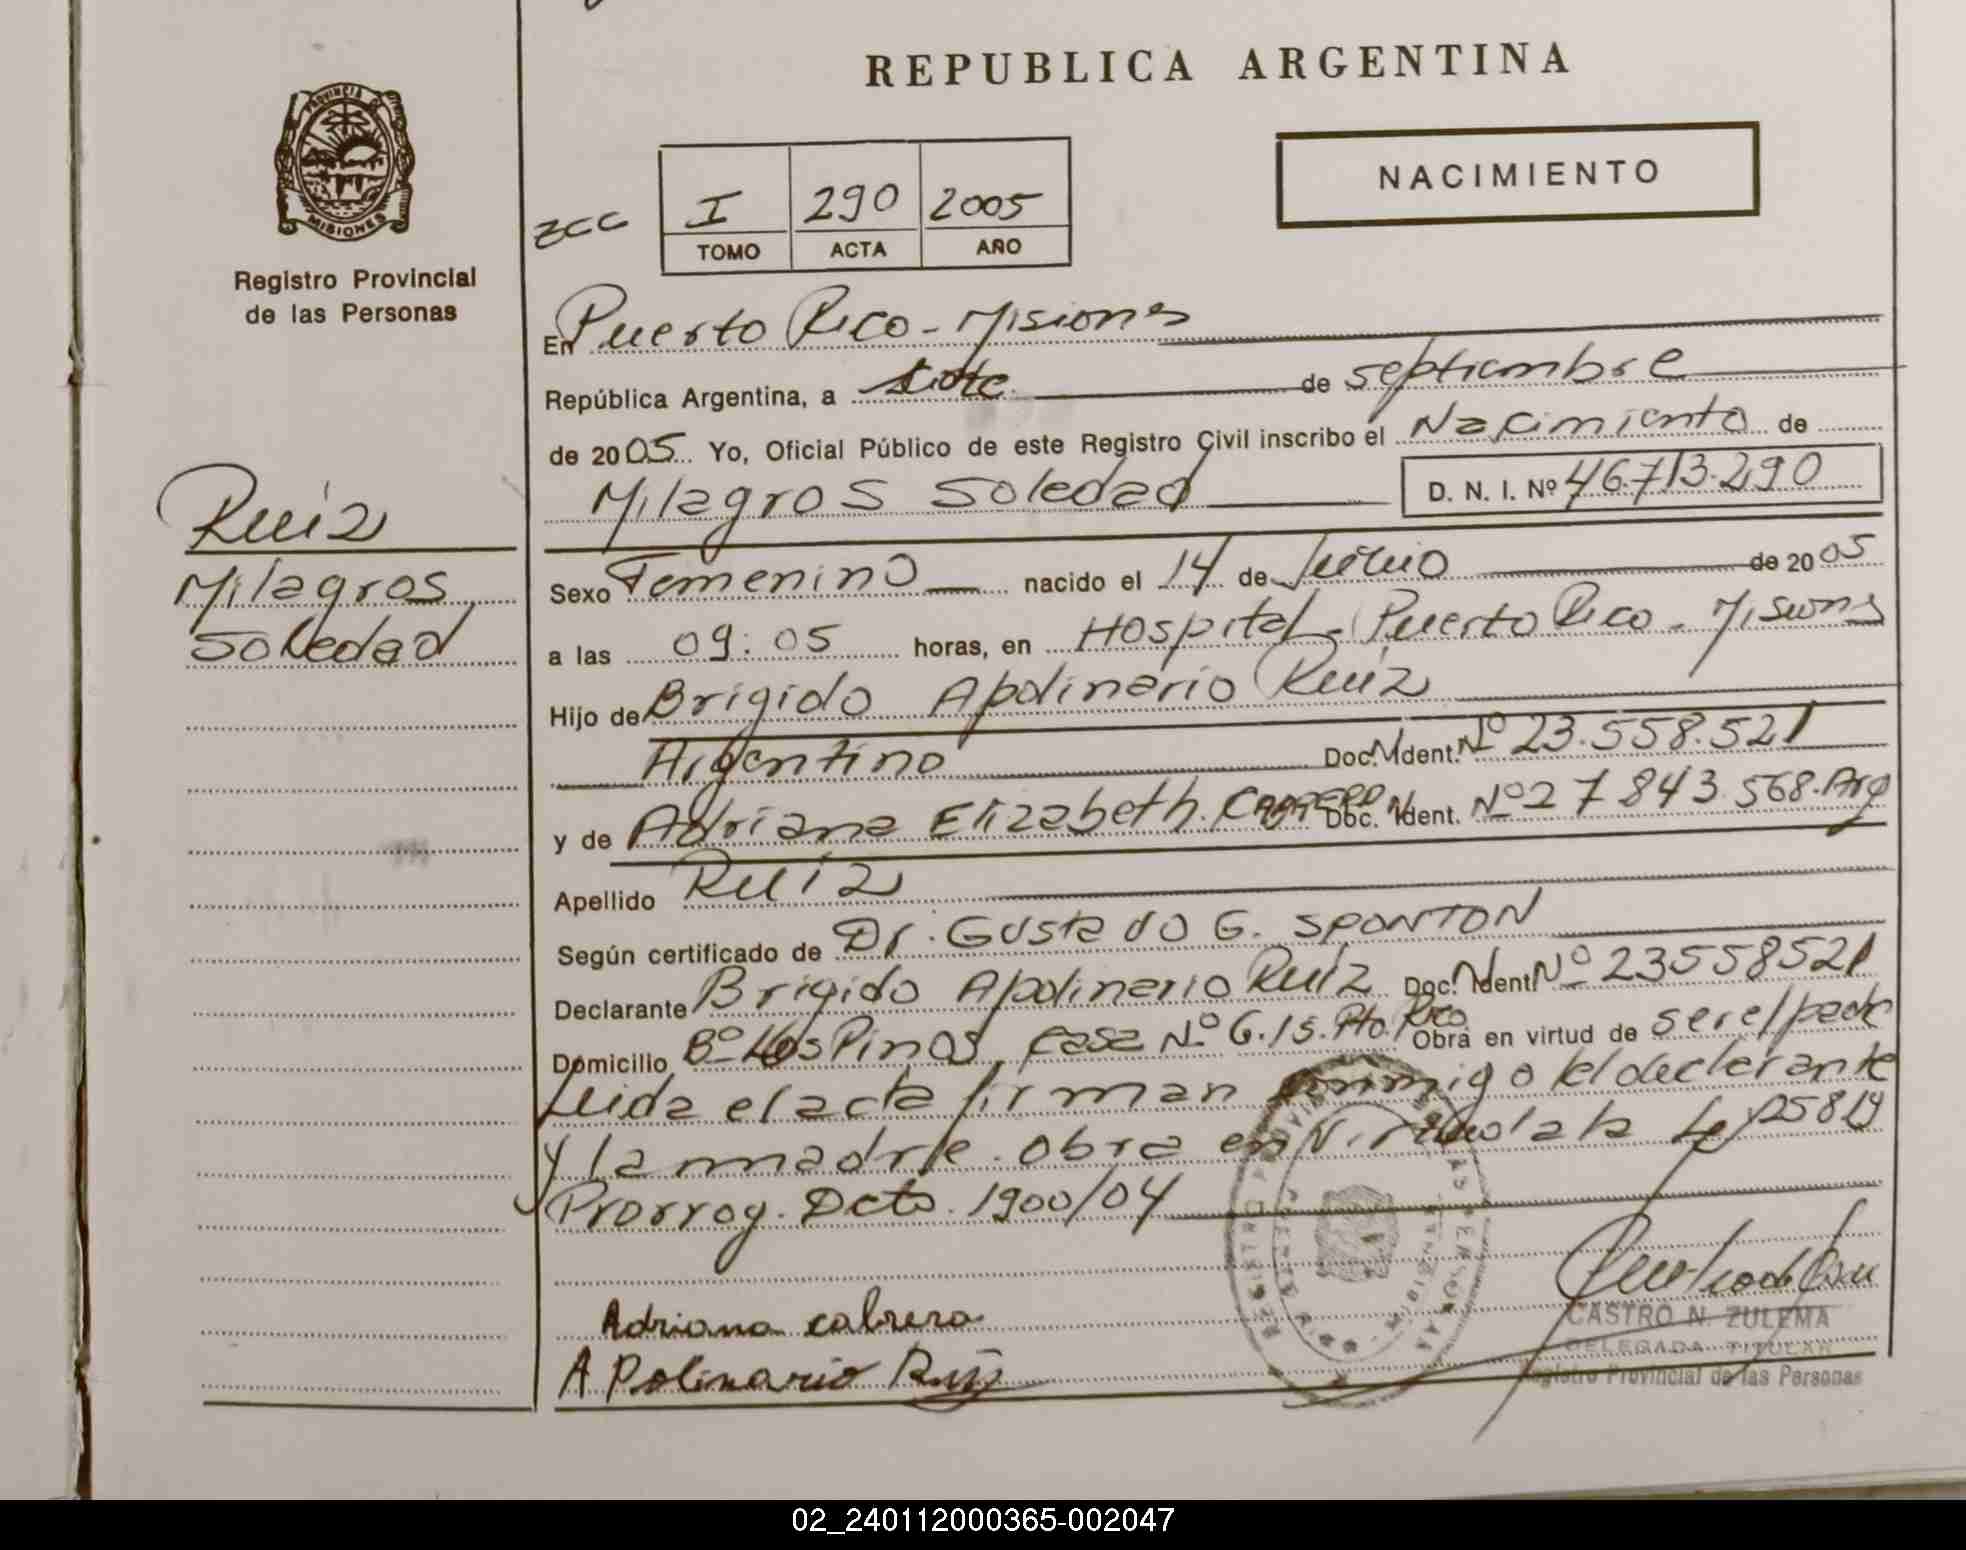 REPUBLICA ARGENTINA
PROVINCIA DE
MISIONES
Registro Provincial
de las Personas
NACIMIENTO
ZCC
I 290 2005
TOMO ACTA AÑO
En Puerto Rico - Misiones
República Argentina, a siete de septiembre
de 2005 Yo, Oficial Público de este Registro Civil inscribo el Nacimiento de
Milagros Soledad D. N. I. Nº 46.713.290
Ruiz
Milagros
Soledad
Sexo Femenino nacido el 14 de Junio de 2005
a las 09:05 horas, en Hospital - Puerto Rico - Misiones
Hijo de Brigido Apolinario Ruiz
Argentino Doc. N Ident. Nº 23.558.521
y de Adriana Elizabeth Cabrera Doc. N Ident. Nº 27 843.568. Arg
Apellido Ruiz
Según certificado de Dr. Gustavo G. SPONTON
Declarante Brigido Apolinario Ruiz Doc. N Ident Nº 23558521
Domicilio Bº Los Pinos, Casa Nº G.15. Pto. Rico Obra en virtud de ser el padre
Leida el acta firman conmigo el declarante
y la madre. Obra en Virtud a la Ley 25819
Prorrog. Dcto. 1900/04
Adriana cabrera
APolinario Ruiz
CASTRO N. ZULEMA
DELEGADA TITULAR
Registro Provincial de las Personas
02_240112000365-002047